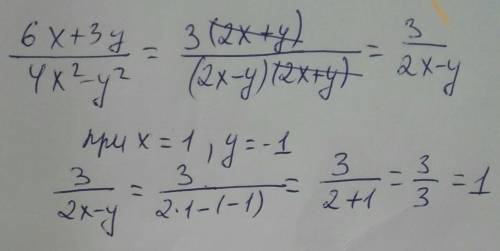 (6x+3y)/(4x²-y²) = 3(2x+y)/((2x-y)(2x+y)) = 3/(2x-y)
при x = 1, y = -1
3/(2x-y) = 3/(2·1-(-1)) = 3/(2+1) = 3/3 = 1